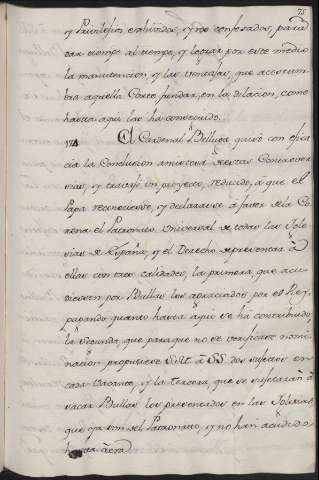 75
y Privilegios exhividos, y no confesados, para
dar tiempo al tiempo, y lograr por este medio
la manutencion y las ventajas, que acostum
bra aquella Corte fundar, en la dilacion, como
hasta aqui las ha conseguido.
174 El Cardenal Belluga quiso con efica
cia la Conclusion amistosa de estas Controver
sias, y trajo un proyecto, reducido, a que el
Papa reconociese, y declarase à favor de la Co
rona el Patronato Universal de todas las Igle
sias de España, y el Derecho de presentar à
ellas con tres calidades, la primera, que acu
diesen por Bullas, los agraciados por el Rey,
pagando quanto hasta aqui se ha contribuido
la segunda, que para que no se verificase nomi
nacion propusiese S.M. à SS. dos sugetos en
cada Vacante, y la tercera, que se sugetaran à
sacar Bullas los presentados en las Iglesias
que ya son del Patronato, y no han acudido
hasta aora